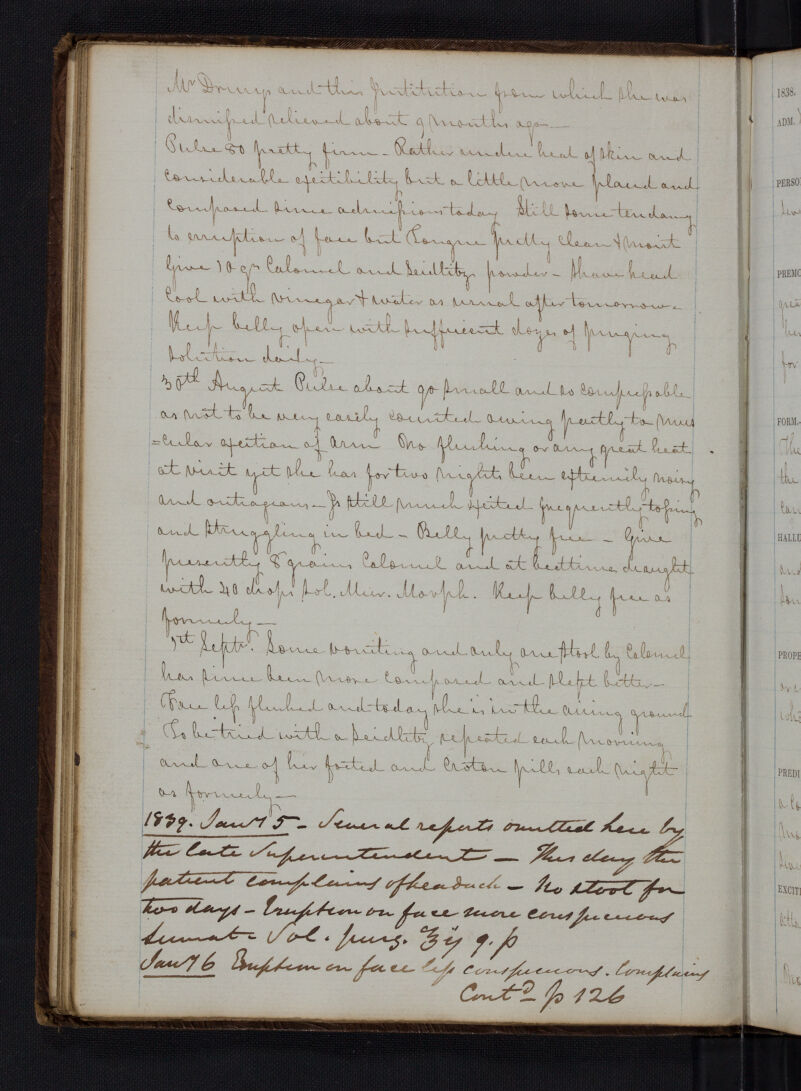 Mr Drurys and this Institution from which she was
dismissed relieved about 9 months ago—
Pulse 80 pretty firm - Rather undue heat of skin and
considerable excitibility but a little more placid and
composed since admission today Still some tendancy
to erruption of face but Tongue pretty clean & moist
Give 10 grs Calomel and Seidlitz powder - Shave head
Cool with vinegar & water as usual after tomorrow -
Keep belly open with sufficient dozes of purging
solution daily—
30th August Pulse about 90 small and so compressable
as not to be very easily counted owing partly to mus
=cular exertion of arm No flushing or any great heat
at visit yet she has for two nights been extremily noisy
and outragious - Is still much exited frequently
and struggling in bed - Belly pretty free - Give
presently 8 grains Calomel and at bedtime draught
with 40 drops Sol. Mur. Morph. Keep belly free as
formerly—
1st Septr. Some vomiting and only one stool by Calomel
has since been more composed and slept better—
Face less flushed and today she is in the airing ground
To be tried with a Seidlitz repeated each morning
and one of her foetid and Croton pills each night
as formerly—
1839. Jany 5 - Several reports omitted here by
the late Superintendent — This day the
patient complains of headach - No stool for
two days - Eruption on face more conspicuous
Sumat Sol. purg. ℥ij q. p
Jany 6 Eruption on face less conspicuous. Complains
Contd p 126
1838.
ADM.
PERSO
PREMO
for
FORM.
The
the
HALLU
and
PROPE
PREDI
EXCIT